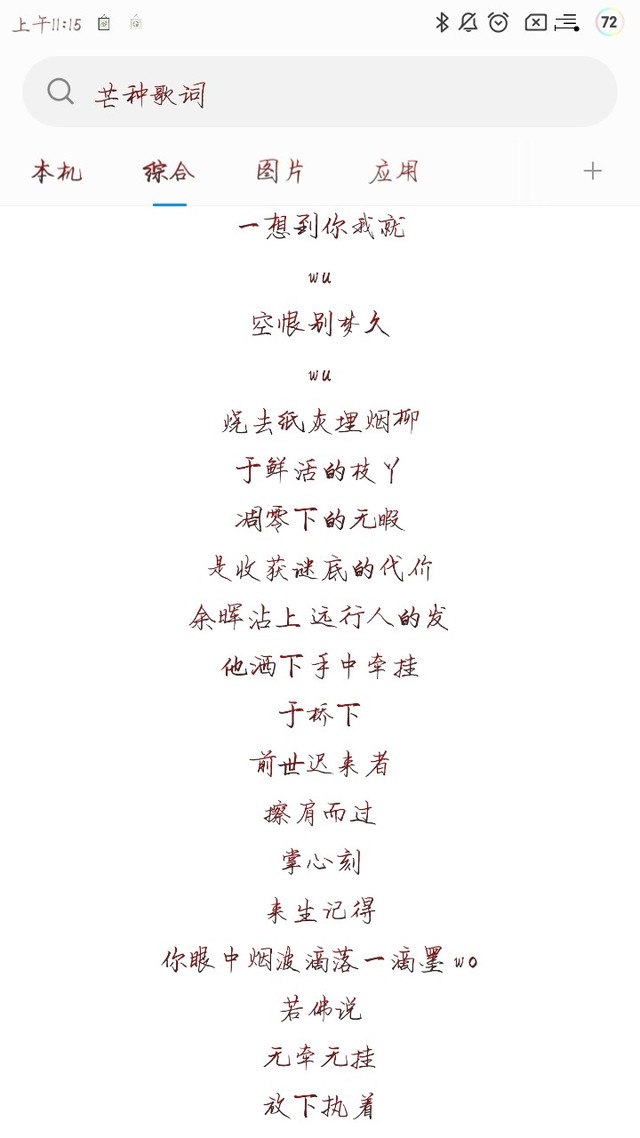 上午11:15 72
芒种歌词
本机 综合 图片 应用
一想到你我就
wu
空恨别梦久
wu
烧去纸灰埋烟柳
于鲜活的枝丫
凋零下的无暇
是收获谜底的代价
余晖沾上 远行人的发
他洒下手中牵挂
于桥下
前世迟来者
擦肩而过
掌心刻
来生记得
你眼中烟波滴落一滴墨 wo
若佛说
无牵无挂
放下执着